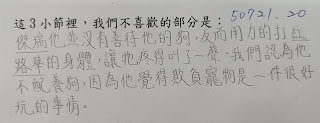 這3小節裡，我們不喜歡的部分是： 50721.20
傑瑞他並沒有善待他的狗，反而用力的打紅
路華的身體，讓牠疼得叫了一聲，我們認為他
不配養狗，因為他覺得欺負寵物是一件很好
玩的事情。